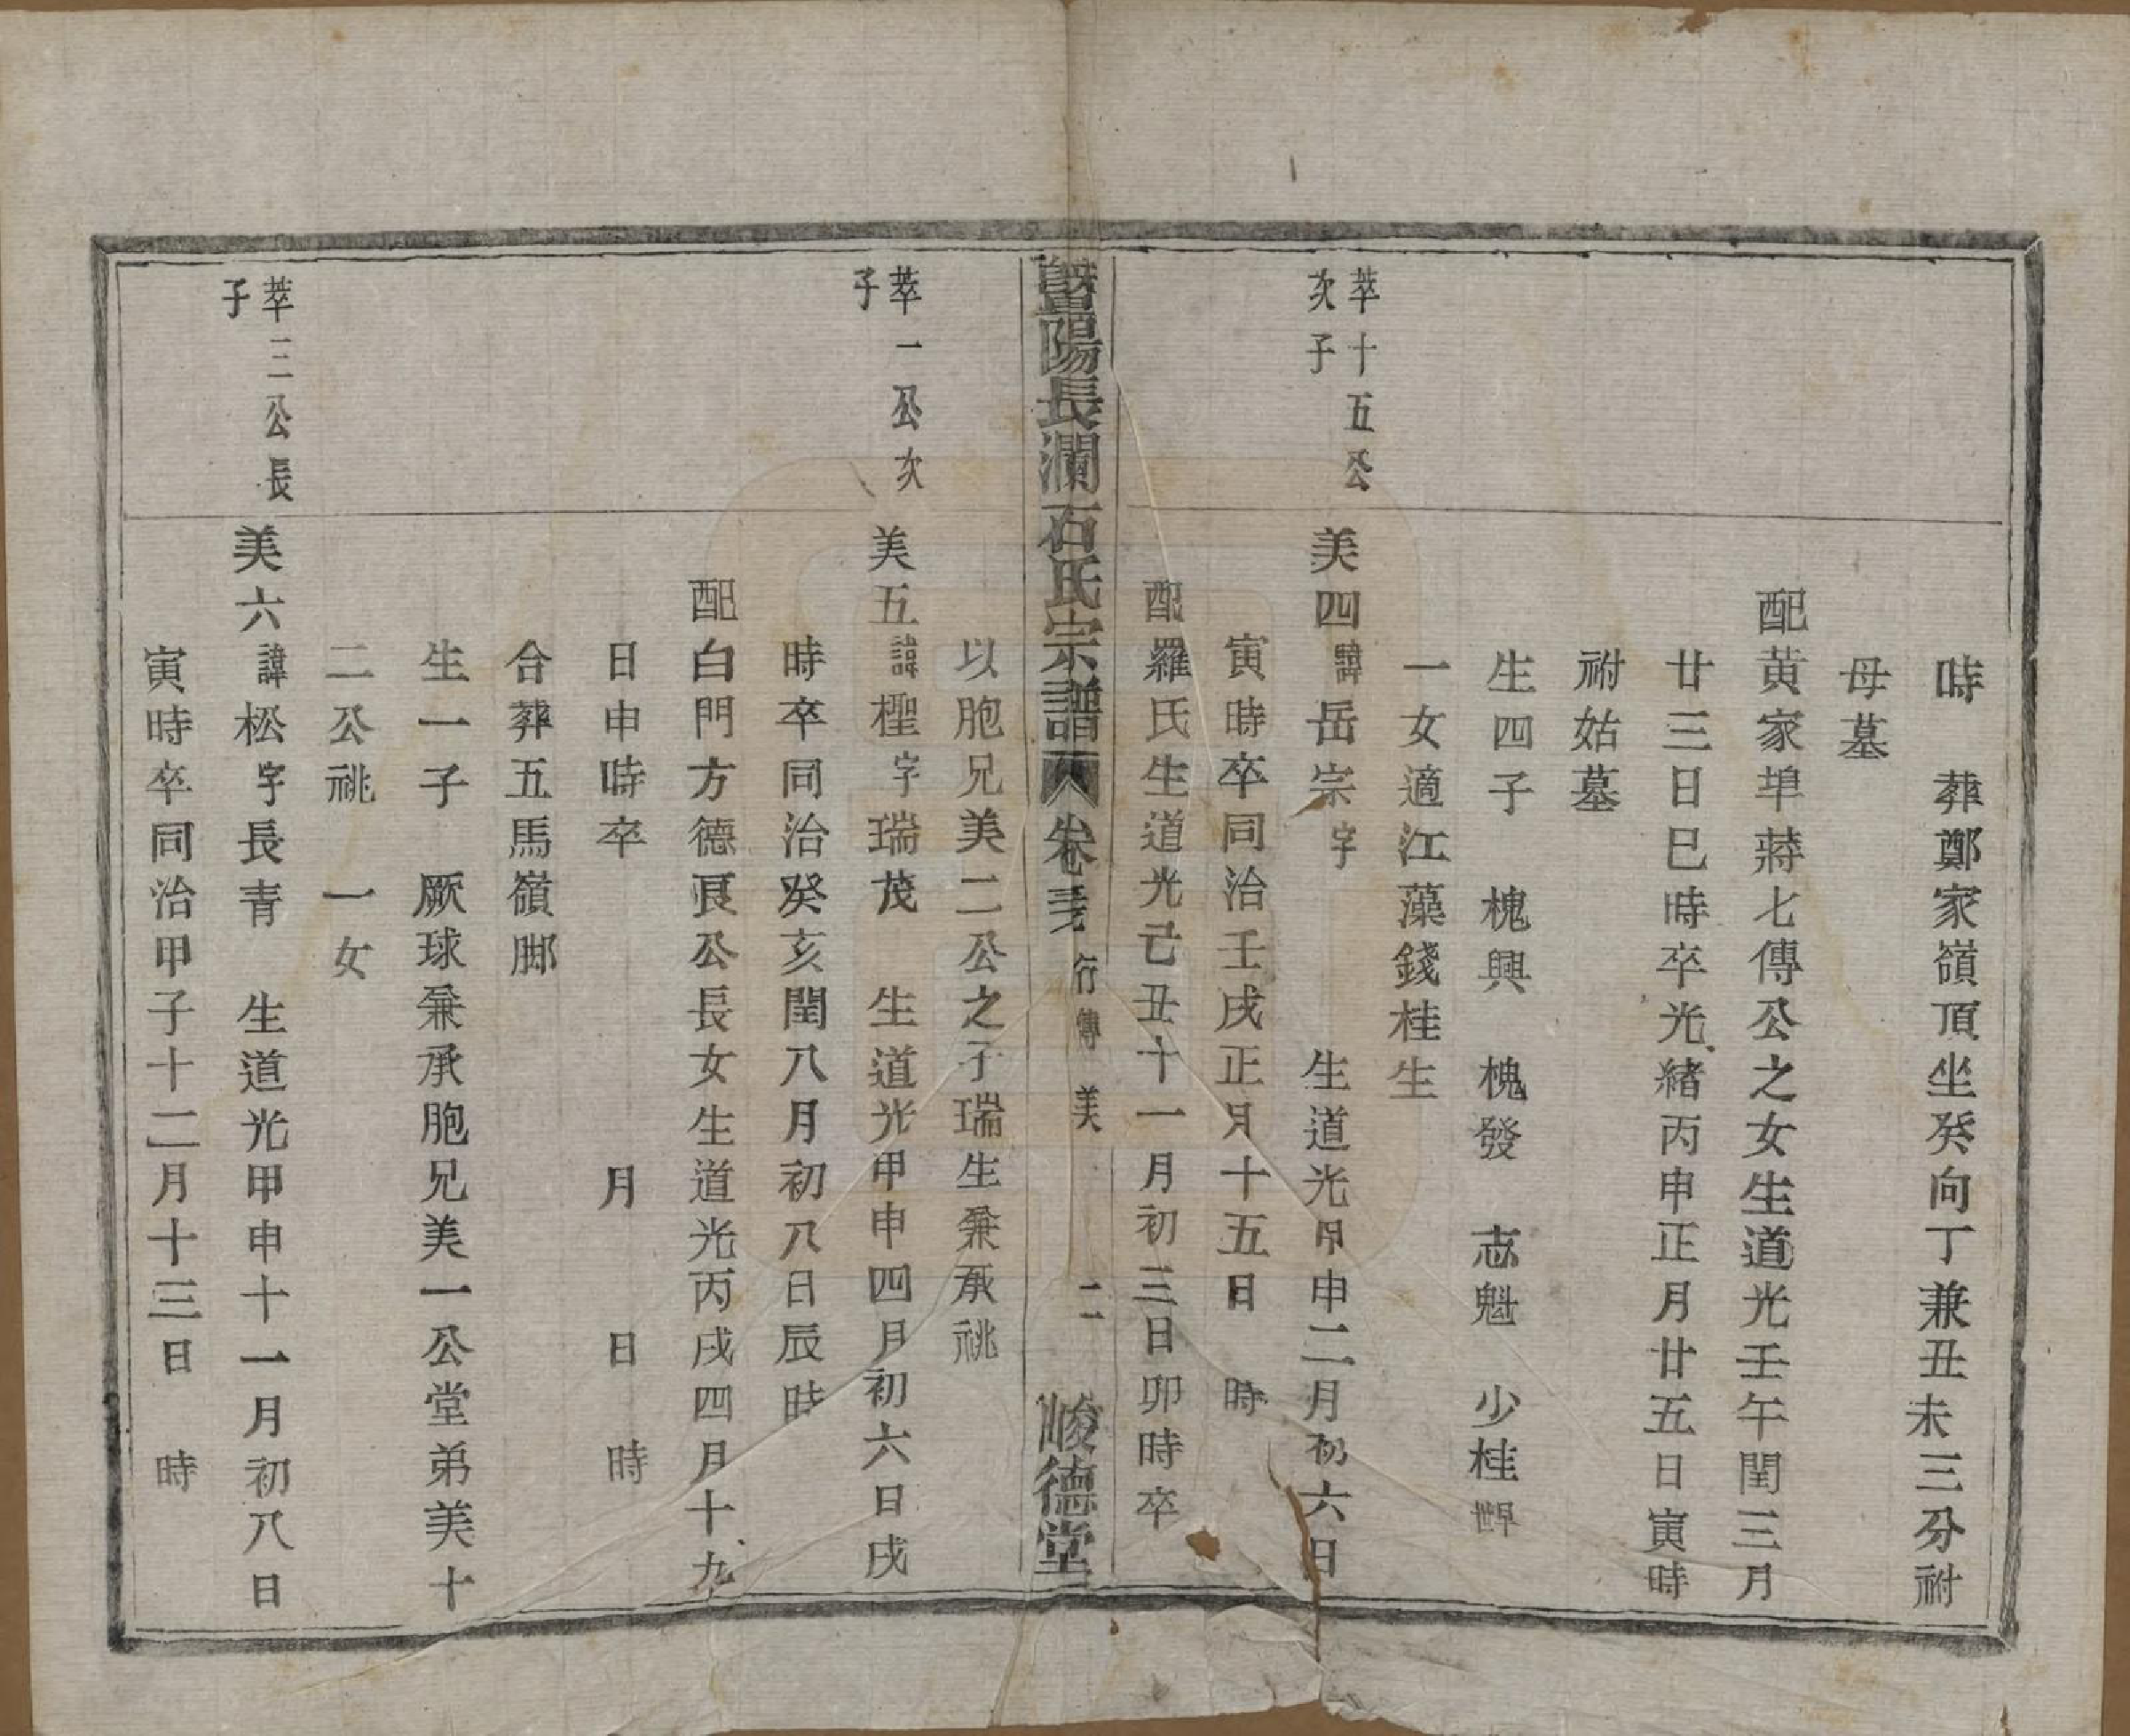 時　葬鄭家嶺頂坐癸向丁兼丑未三分祔
母墓
配黄家埠蔣七傳公之女生道光壬午閏三月
廿三日巳時卒光緒丙申正月廿五日寅時
祔姑墓
生四子　槐興　槐發　志魁　少桂
一女適江藻錢桂生
萃十五公
次子
美四諱岳宗字　　　生道光甲申二月初六日
寅時卒同治壬戌正月十五日　時
配羅氏生道光己丑十一月初三日卯時卒
暨陽長瀾石氏宗譜　卷　行傳　美　二　峻德堂
以胞兄美二公之子瑞生兼承祧
萃一公次
子
美五諱檉字瑞茂　生道光甲申四月初六日戌
時卒同治癸亥閏八月初八日辰時
配白門方德良公長女生道光丙戌四月十九
日申時卒　　　月　　日　時
合葬五馬嶺脚
生一子　厥球兼承胞兄美一公堂弟美十
二公祧　一女
萃三公長
子
美六諱松字長青　生道光甲申十一月初八日
寅時卒同治甲子十二月十三日　時